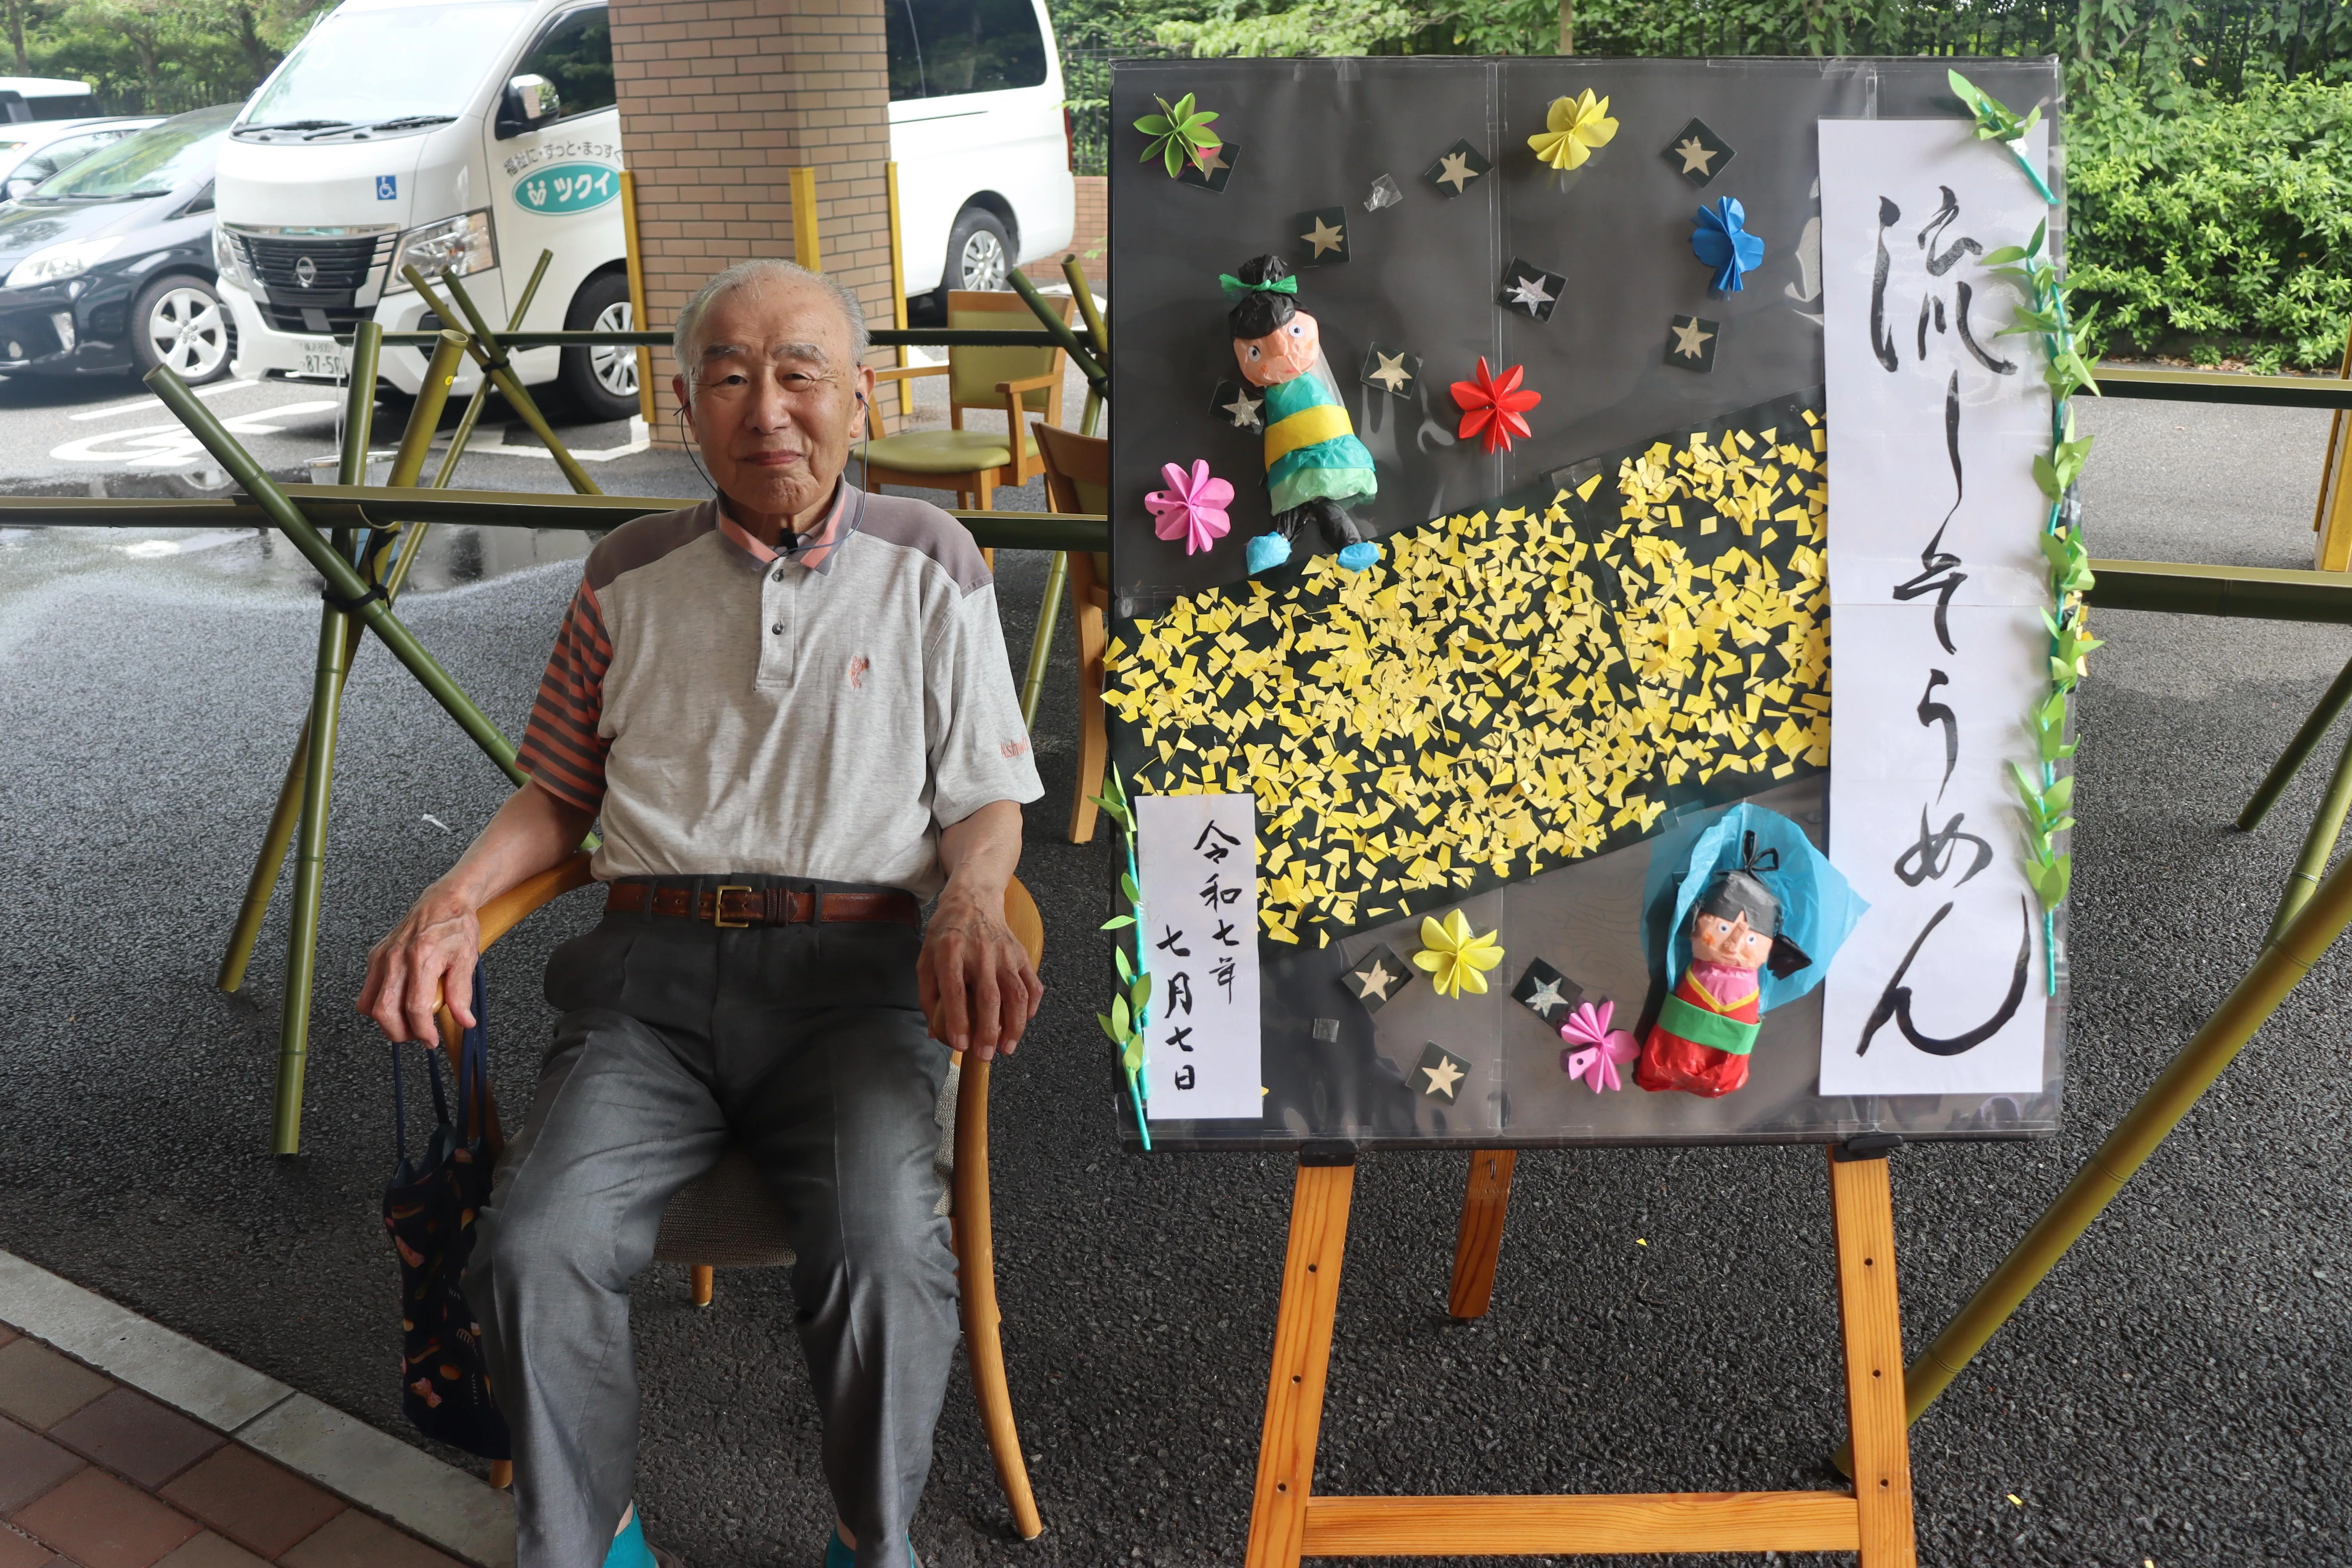 福祉に・ずっと・まっすぐ
ツクイ
87-50
流しそうめん
令和七年
七月七日